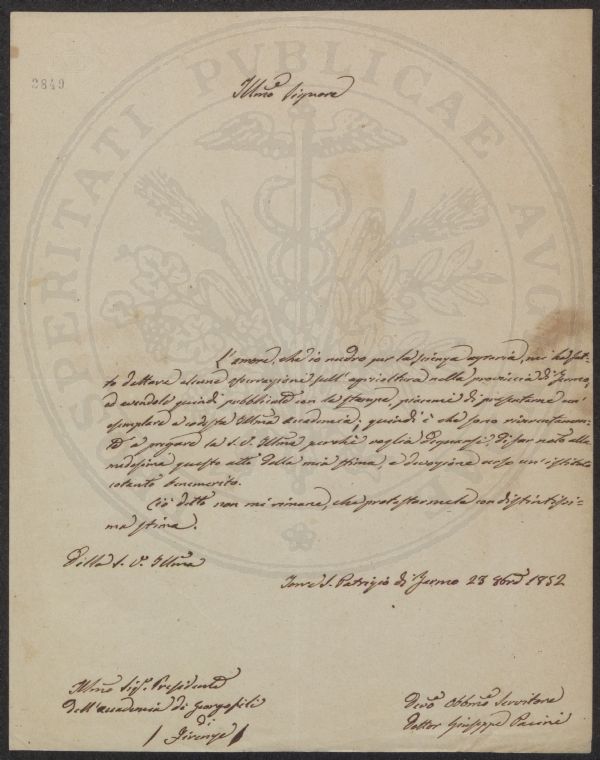 2849
Illmo Signore
L'amore, che io nudro per la scienza agraria, mi ha fat-
to dettare alcune osservazioni sull'agricoltura nella provincia di Fermo,
ed avendole quindi pubblicate con le stampe, piacemi di presentarne un'
esemplare a codesta Illma accademia; quindi è che sono
a pregare la S. V. Illma perchè voglia di far noto alla
medesima questo atto della mia stima, e devozione verso un'istituto
cotanto benemerito.
Ciò detto non mi rimane, che protestarmele con distintissi-
ma stima.
Della S. V. Illma
Torre S. Patrizio di Fermo 23 1852
Illmo Sigr. Presidente
dell'accademia di Georgofili
di
/ Firenze /
Devmo Obbmo Servitore
Dottor Giuseppe Pacini
PROSPERITATI PUBLICAE AUG